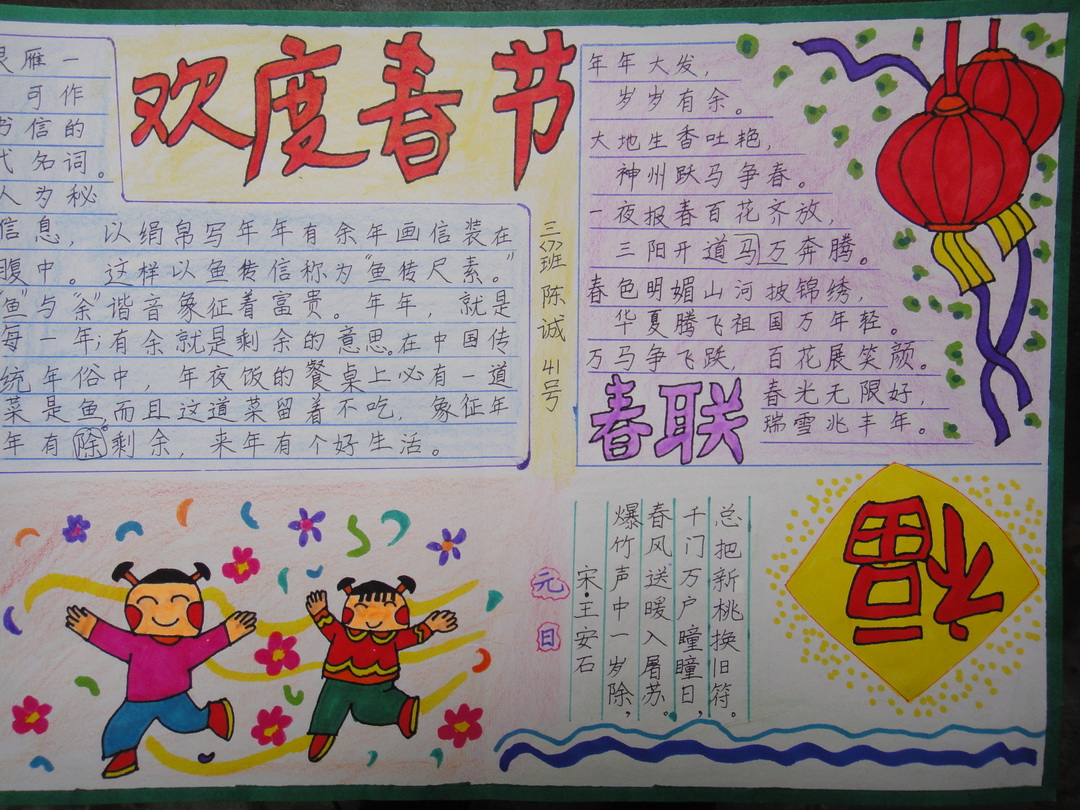 欢度春节
雁一
可作
书信的
代名词。
人为秘
信息，以绢帛写年年有余年画信装在
腹中。这样以鱼传信称为“鱼传尺素。”
“鱼”与“余”谐音象征着富贵。年年，就是
每一年；有余就是剩余的意思。在中国传
统年俗中，年夜饭的餐桌上必有一道
菜是鱼，而且这道菜留着不吃，象征年
年有除剩余，来年有个好生活。
三级班 陈诚 41号
年年大发，
岁岁有余。
大地生香吐艳，
神州跃马争春。
一夜报春百花齐放，
三阳开道马万奔腾。
春色明媚山河披锦绣，
华夏腾飞祖国万年轻。
万马争飞跃，百花展笑颜。
春光无限好，
瑞雪兆丰年。
春联
元日
宋·王安石
爆竹声中一岁除，
春风送暖入屠苏。
千门万户瞳瞳日，
总把新桃换旧符。
福